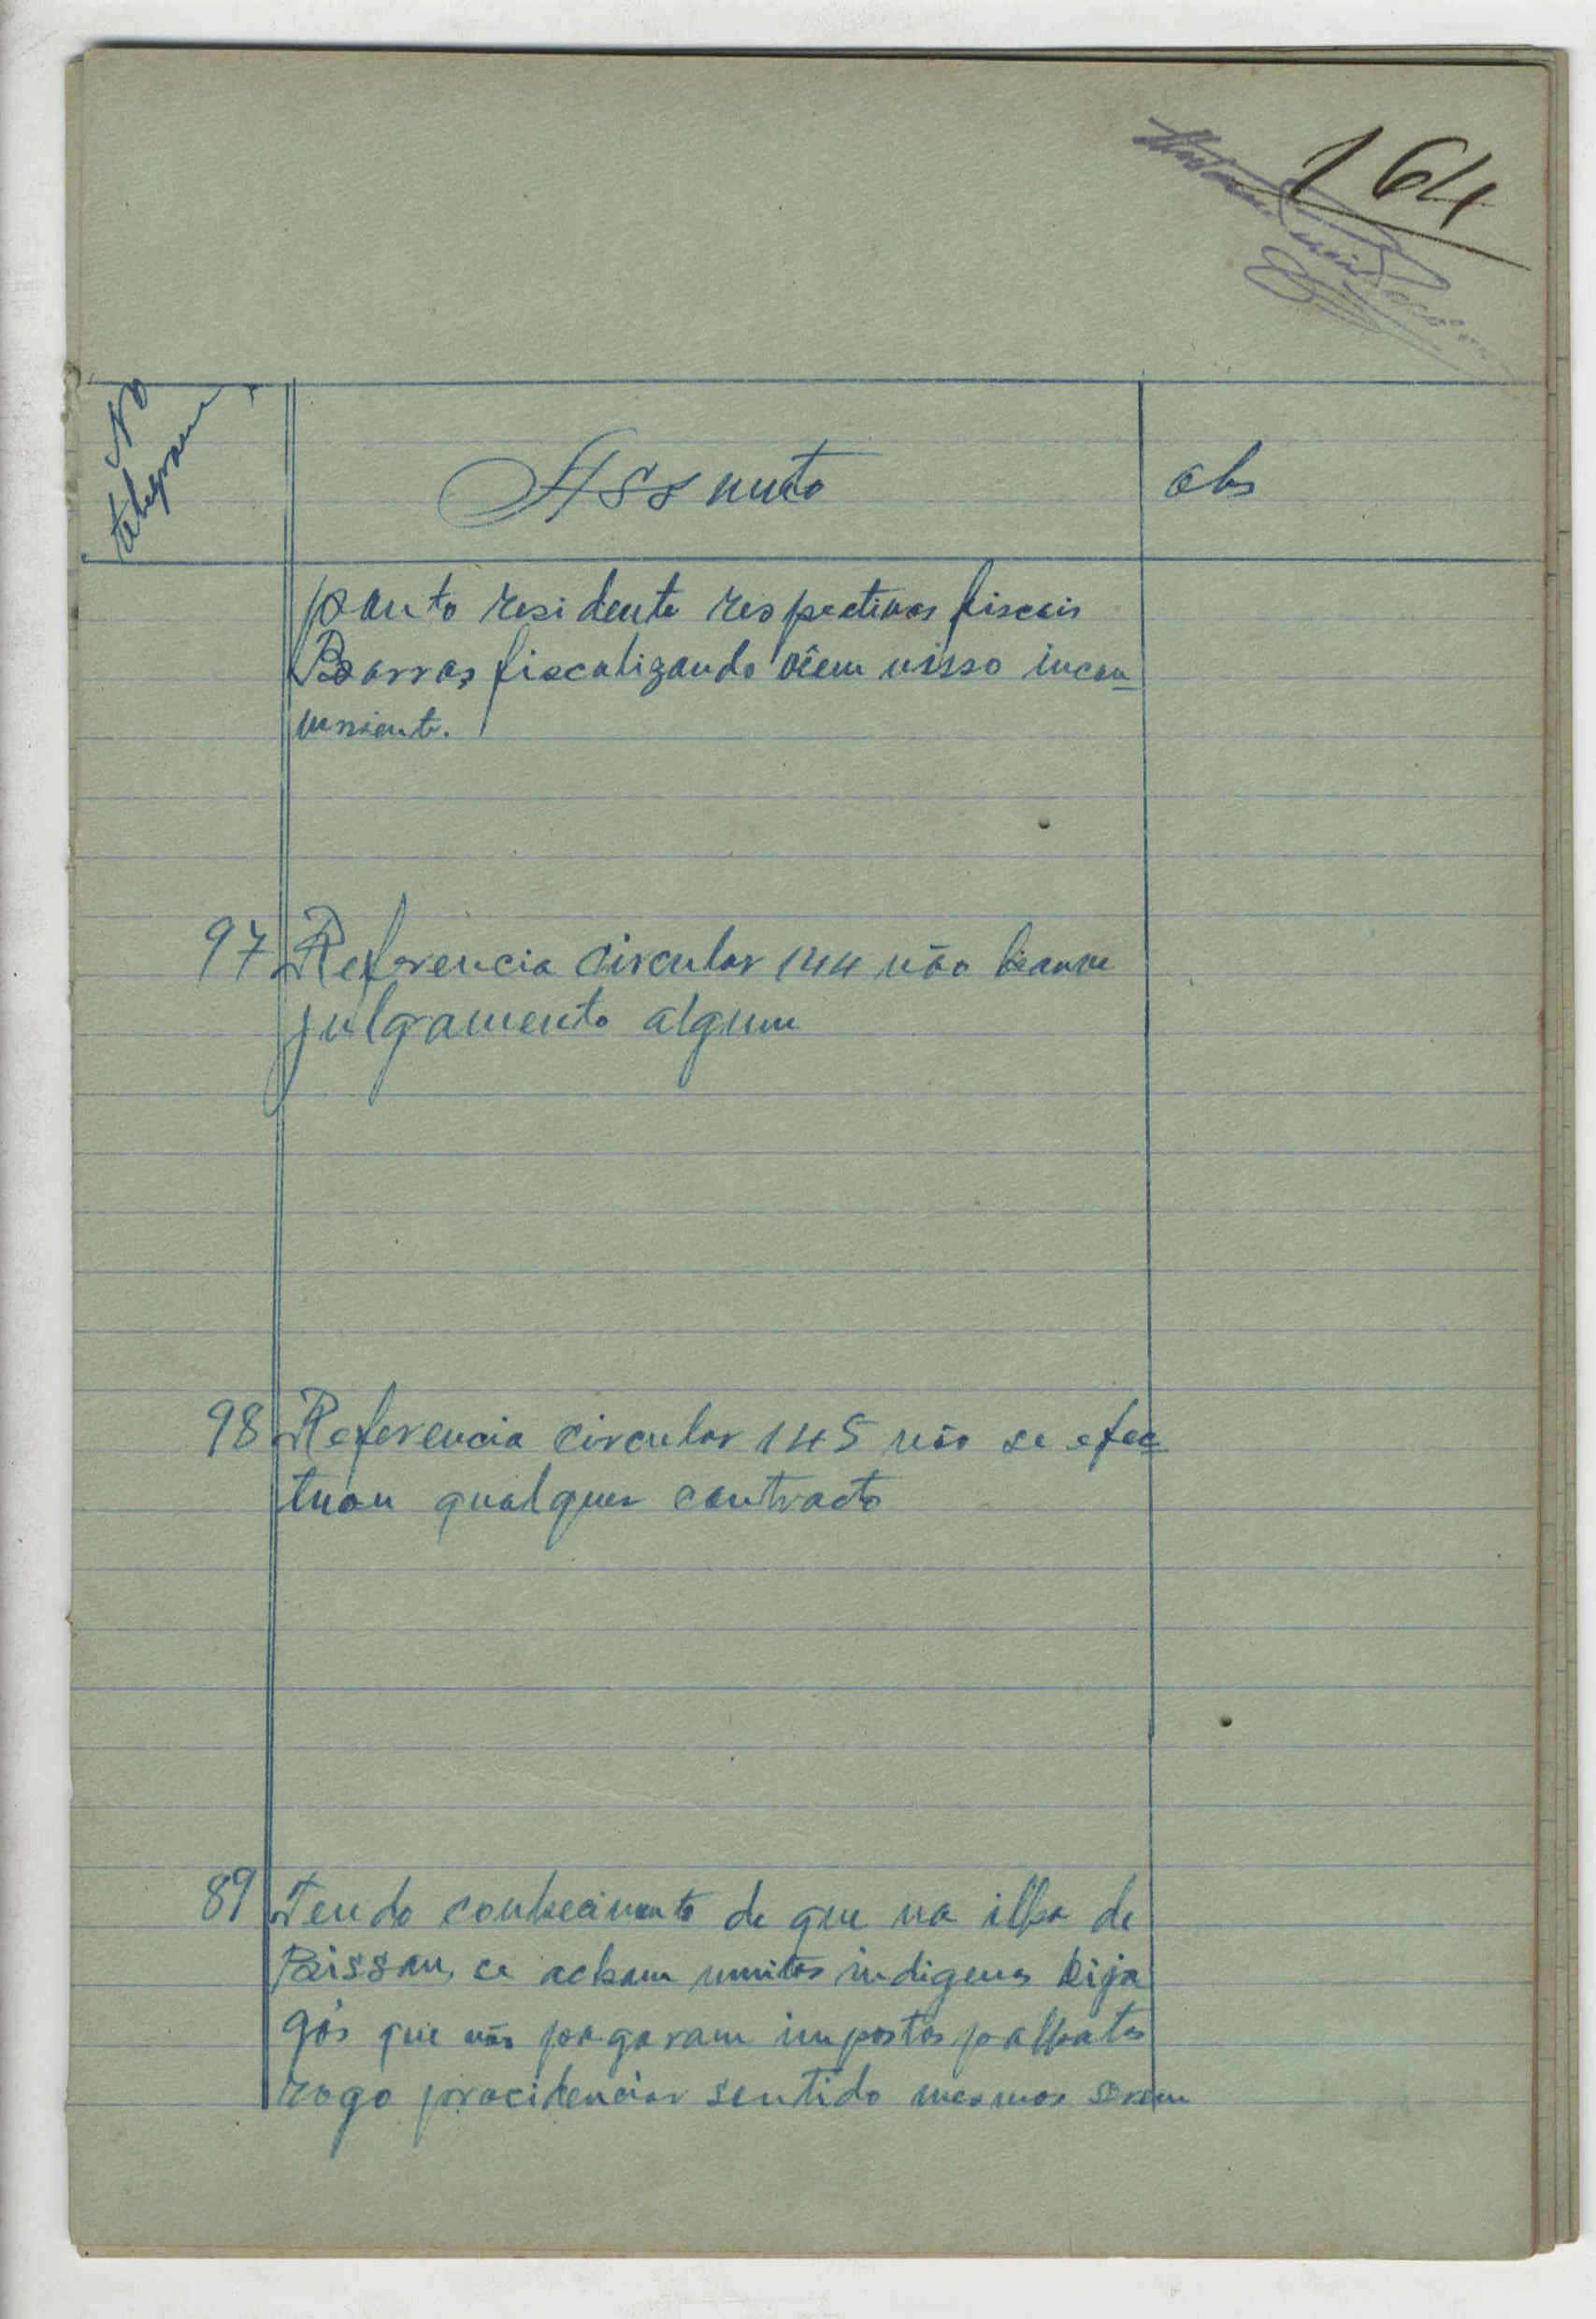 164
No
telegrama
Assunto
obs
ponto residente respectivos fiscais
Barros fiscalizando vêem nisso incon
veniente.
97 Referencia circular 144 não houve
julgamento algum
98 Referencia circular 145 não se efec
tuou qualquer contracto
89 Tendo conhecimento de que na ilha de
Bissau, se acham muitos indigenas bija
gós que não pagaram impostos palhotas
rogo providenciar sentido mesmos serem